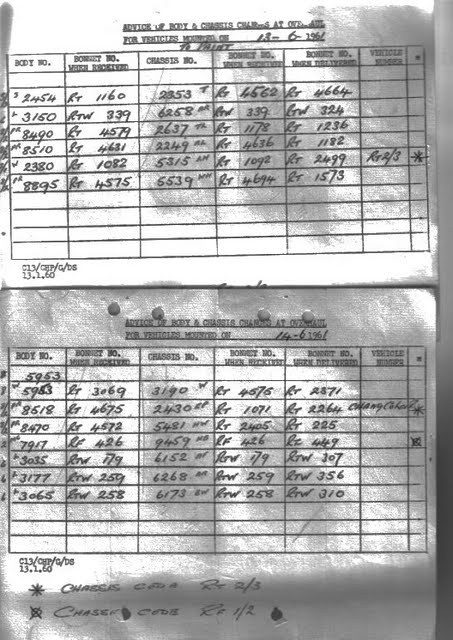 ADVICE OF BODY & CHASSIS CHANGES AT OVERHAUL
FOR VEHICLES MOUNTED ON 13-6-1961
TO PAINT
BODY NO. BONNET NO. WHEN RECEIVED CHASSIS NO. BONNET NO. WHEN RECEIVED BONNET NO. WHEN DELIVERED VEHICLE NUMBER
2454 RT 1160 2353 T RT 4562 RT 4664
3150 RTW 339 6258 RTW 339 RTW 324
8490 RT 4579 2637 RT 1178 RT 1236
8510 RT 4631 2249 RT 4636 RT 1182
W 2380 RT 1082 5315 RT 1092 RT 2499 RT 2/3 *
8895 RT 4575 5539 RT 4694 RT 1573
C13/CHP/G/DS
13.1.60
ADVICE OF BODY & CHASSIS CHANGES AT OVERHAUL
FOR VEHICLES MOUNTED ON 14-6-1961
BODY NO. BONNET NO. WHEN RECEIVED CHASSIS NO. BONNET NO. WHEN RECEIVED BONNET NO. WHEN DELIVERED VEHICLE NUMBER
5953
W 5953 RT 3069 3190 W RT 4575 RT 2371
8518 RT 4675 2430 RT 1071 RT 2264 *
8470 RT 4572 5481 RT 2405 RT 225
7917 RF 426 9459 RF 426 RF 449
3035 RTW 179 6152 RTW 179 RTW 307
3177 RTW 259 6268 RTW 259 RTW 356
3065 RTW 258 6173 RTW 258 RTW 310
C13/CHP/G/DS
13.1.60
* CHASSIS CODE RT 2/3
CHASSIS CODE RF 1/2